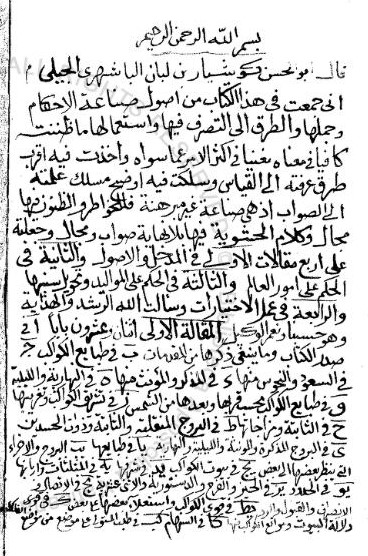 بسم الله الرحمن الرحيم
قال ابو الحسن كوشيار بن لبان الباشهري الجيلي
اني جمعت في هذا الكتاب من اصول صناعة الاحكام
وجملها والطرق الى التصرف فيها واستعمالها ما ظننته
كافيا في معناه مغنيا في اكثر الامر عما سواه واخذت فيه اقرب
طرق عرفته الى القياس وسلكت فيه اوضح مسلك علمته
الى الصواب اذ هي صناعة غير مبرهنة فللخواطر والظنون فيها
مجال وكلام الحشوية فيها بلا نهاية صواب ومحال وجعلته
على اربع مقالات الاولى في المدخل والاصول والثانية في
الحكم على امور العالم والثالثة في الحكم على المواليد وتحويل سنيها
والرابعة في عمل الاختيارات وسالت الله الرشد والهداية
وهو حسبنا ونعم الوكيل المقالة الاولى اثنان وعشرون بابا ا في
صدر الكتاب وما ينبغي ذكرها من المقدمات ب في طبايع الكواكب ج
في السعود والنحوس منها د في المذكر والمؤنث منها ه في النهارية والليلية
و في طبايع الكواكب بحسب قربها وبعدها من الشمس ز في تشريق الكواكب وتغريبها
ح في الثابتة ومزاجاتها ط في البروج المنقلبة والثابتة وذوات الجسدين
ي في البروج المذكرة والمؤنثة والليلية والنهارية يا في طبايعها يب البروج والاجزاء
التي ينظر بعضها الى بعض يج في بيوت الكواكب يد في اشرافها يه في المثلثات واربابها
يو في الحدود يز في الحيز والفرح والدستورية والاثنى عشرية يح في الاتصال
الانصراف والقبول يط في قوى الكواكب واستعلاء بعضها على بعض ك في قوى
دلالة البيوت كا في السهام كب